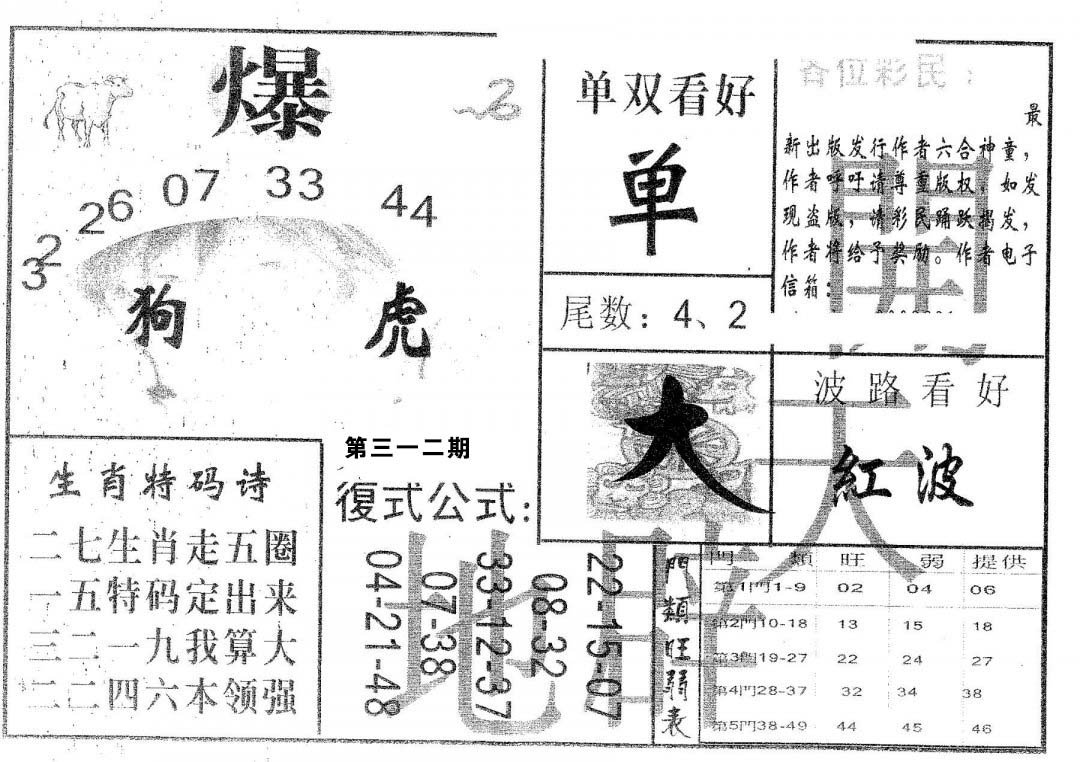 爆
32
26
07
33
44
狗
虎
单双看好
单
尾数：4、2
各位彩民：
最
新出版发行作者六合神童，
作者呼吁请尊重版权，如发
现盗版，请彩民踊跃揭发，
作者将给予奖励。作者电子
信箱：
大
波路看好
紅波
生肖特码诗
二七生肖走五圈
一五特码定出来
三二一九我算大
二二四六本领强
第三一二期
復式公式：
04-21-48
07-38
33-12-37
08-32
22-15-07
門類旺弱表
門 類 旺 弱 提供
第1門1-9 02 04 06
第2門10-18 13 15 18
第3門19-27 22 24 27
第4門28-37 32 34 38
第5門38-49 44 45 46